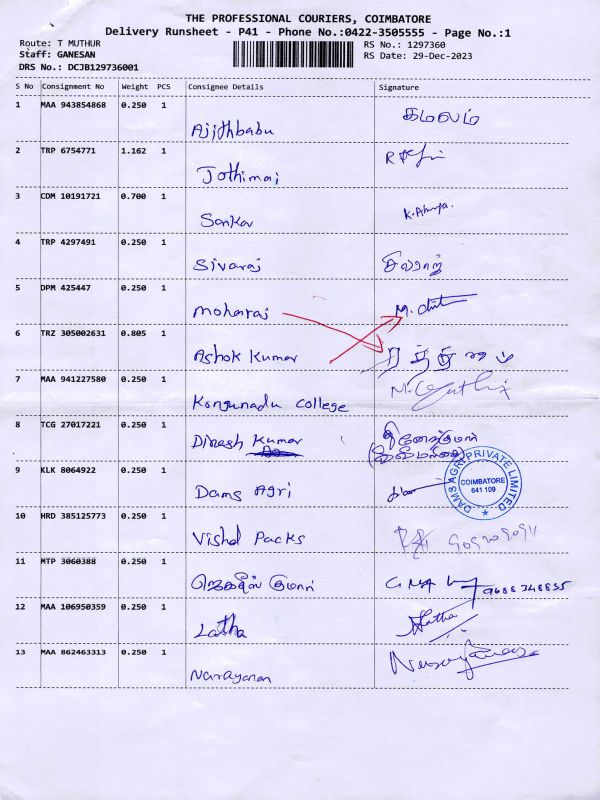 THE PROFESSIONAL COURIERS, COIMBATORE
Delivery Runsheet - P41 - Phone No.:0422-3505555 - Page No.:1
Route: T MUTHUR RS No.: 1297360
Staff: GANESAN RS Date: 29-Dec-2023
DRS No.: DCJB129736001
S No Consignment No Weight PCS Consignee Details Signature
1 MAA 943854868 0.250 1 Ajithbabu கமலம்
2 TRP 6754771 1.162 1 Jothimai
3 CDM 10191721 0.700 1 Sankar
4 TRP 4297491 0.250 1 Sivaraj சிவராஜ்
5 DPM 425447 0.250 1 moharaj
6 TRZ 305002631 0.805 1 Ashok Kumar
7 MAA 941227580 0.250 1 Kongunadu college
8 TCG 27017221 0.250 1 Dinesh Kumar தினேஷ்குமார்
9 KLK 8064922 0.250 1 Dams Agri
DAMS AGRI PRIVATE LIMITED
COIMBATORE
641 109
10 HRD 385125773 0.250 1 Vishal Packs
11 MTP 3060388 0.250 1 ஜெகதீஸ் குமார் 9688348835
12 MAA 106950359 0.250 1 Latha Latha
13 MAA 862463313 0.250 1 Narayanan